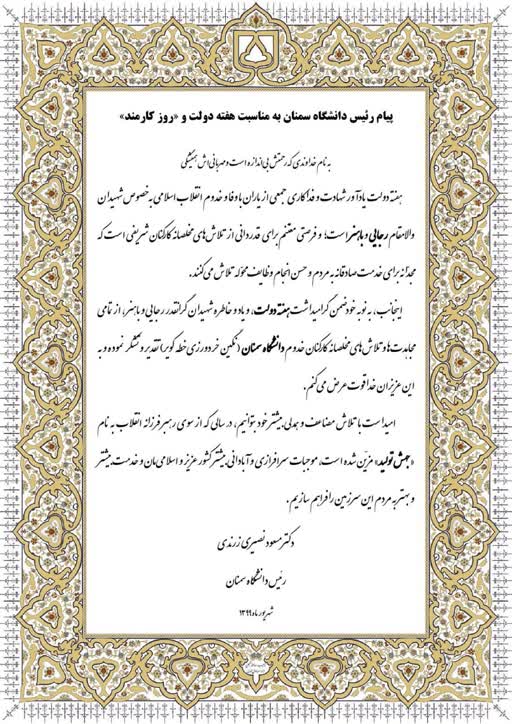 پیام رئیس دانشگاه سمنان به مناسبت هفته دولت و «روز کارمند»
به نام خداوندی که رحمتش بی‌اندازه است و مهربانی‌اش همیشگی
هفته دولت یادآور شهادت و فداکاری جمعی از یاران باوفا و خدوم انقلاب اسلامی به خصوص شهیدان
والامقام رجایی و باهنر است؛ و فرصتی مغتنم برای قدردانی از تلاش‌های مخلصانه کارکنان شریفی است که
مجدّانه برای خدمت صادقانه به مردم و حسن انجام وظایف محوّله تلاش می‌کنند.
اینجانب، به نوبه خود ضمن گرامیداشت هفته دولت، و یاد و خاطره شهیدان گرانقدر رجایی و باهنر، از تمامی
مجاهدت‌ها و تلاش‌های مخلصانه کارکنان خدوم دانشگاه سمنان (نگین خردورزی خطه کویر) تقدیر و تشکر نموده و به
این عزیزان خدا قوت عرض می‌کنم.
امید است با تلاش مضاعف و همدلی بیشتر خود بتوانیم، در سالی که از سوی رهبر فرزانه انقلاب به نام
«جهش تولید» مزیّن شده است، موجبات سرافرازی و آبادانی بیشتر کشور عزیز و اسلامی‌مان و خدمت بیشتر
و بهتر به مردم این سرزمین را فراهم سازیم.
دکتر مسعود نصیری زرندی
رئیس دانشگاه سمنان
شهریور ماه ۱۳۹۹